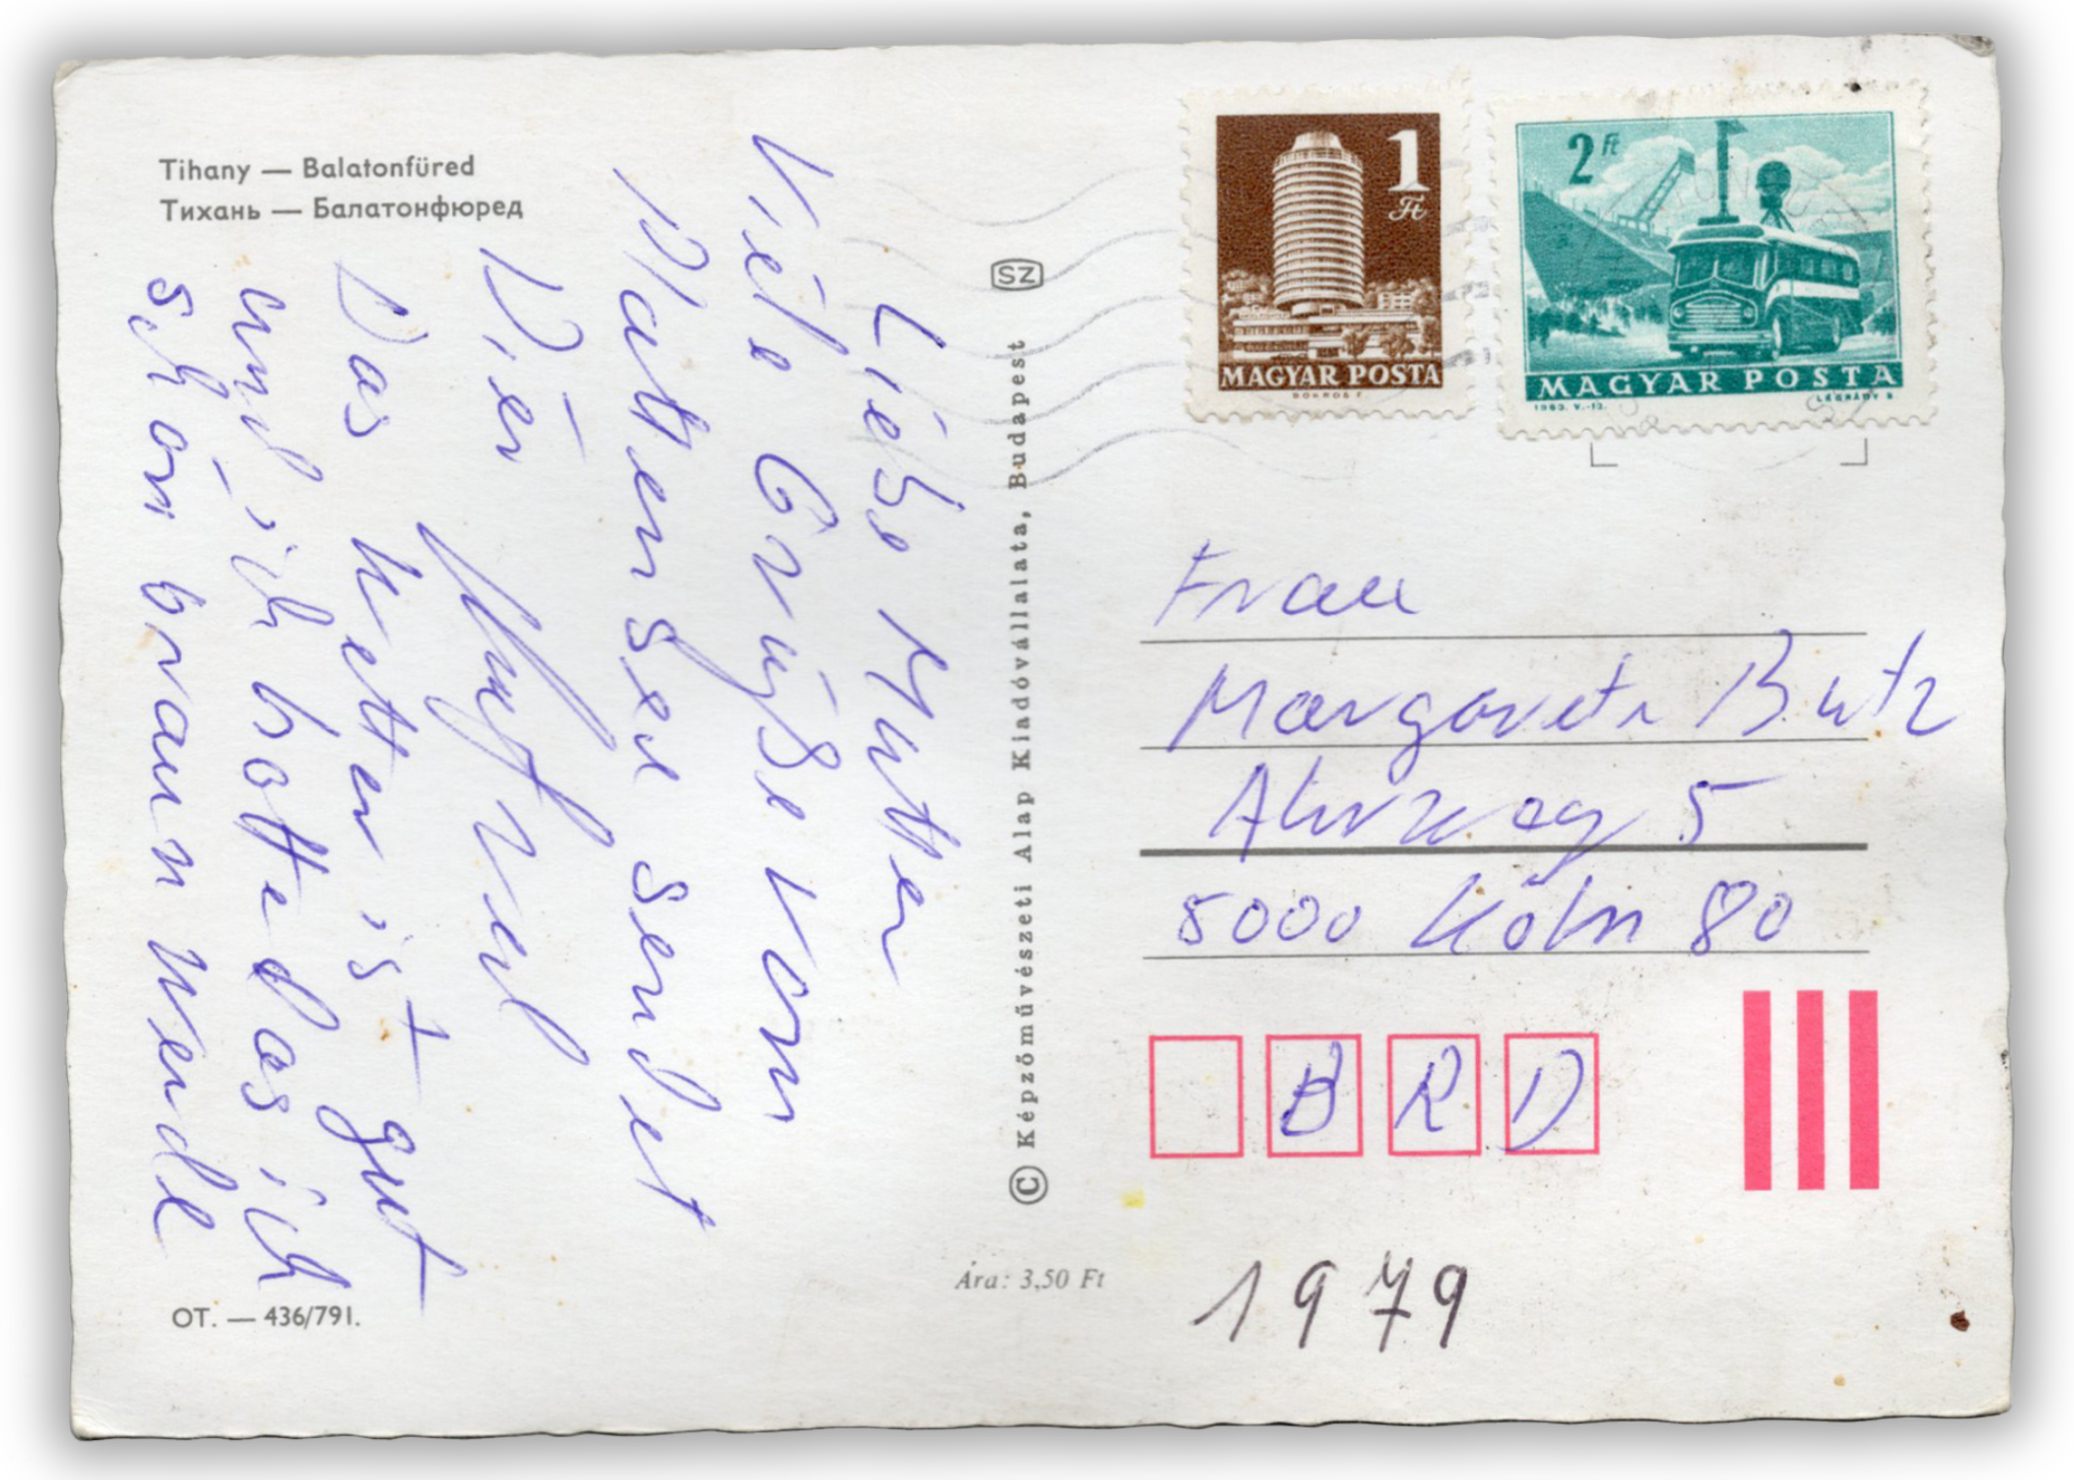 Tihany — Balatonfüred
Тихань — Балатонфюред
Liebe Mutter
Viele Grüße vom
Plattensee sendet
Dir
Das Wetter ist gut
und ich hoffe das ich
schön braun werde
OT. — 436/791.
SZ
© Képzőművészeti Alap Kiadóvállalata, Budapest
Ára: 3,50 Ft
1
Ft
MAGYAR POSTA
2 Ft
MAGYAR POSTA
Frau
Margarete Butz
Ahrweg 5
5000 Köln 80
BRD
1979